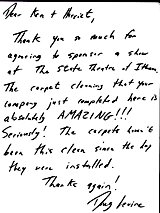 Dear Ken + Harriet,
Thank you so much for
agreeing to sponsor a show
at The State Theatre of Ithaca.
The carpet cleaning that your
company just completed here is
absolutely AMAZING!!!
Seriously! The carpets haven't
been this clean since the day
they were installed.
Thanks again!
Doug Levine